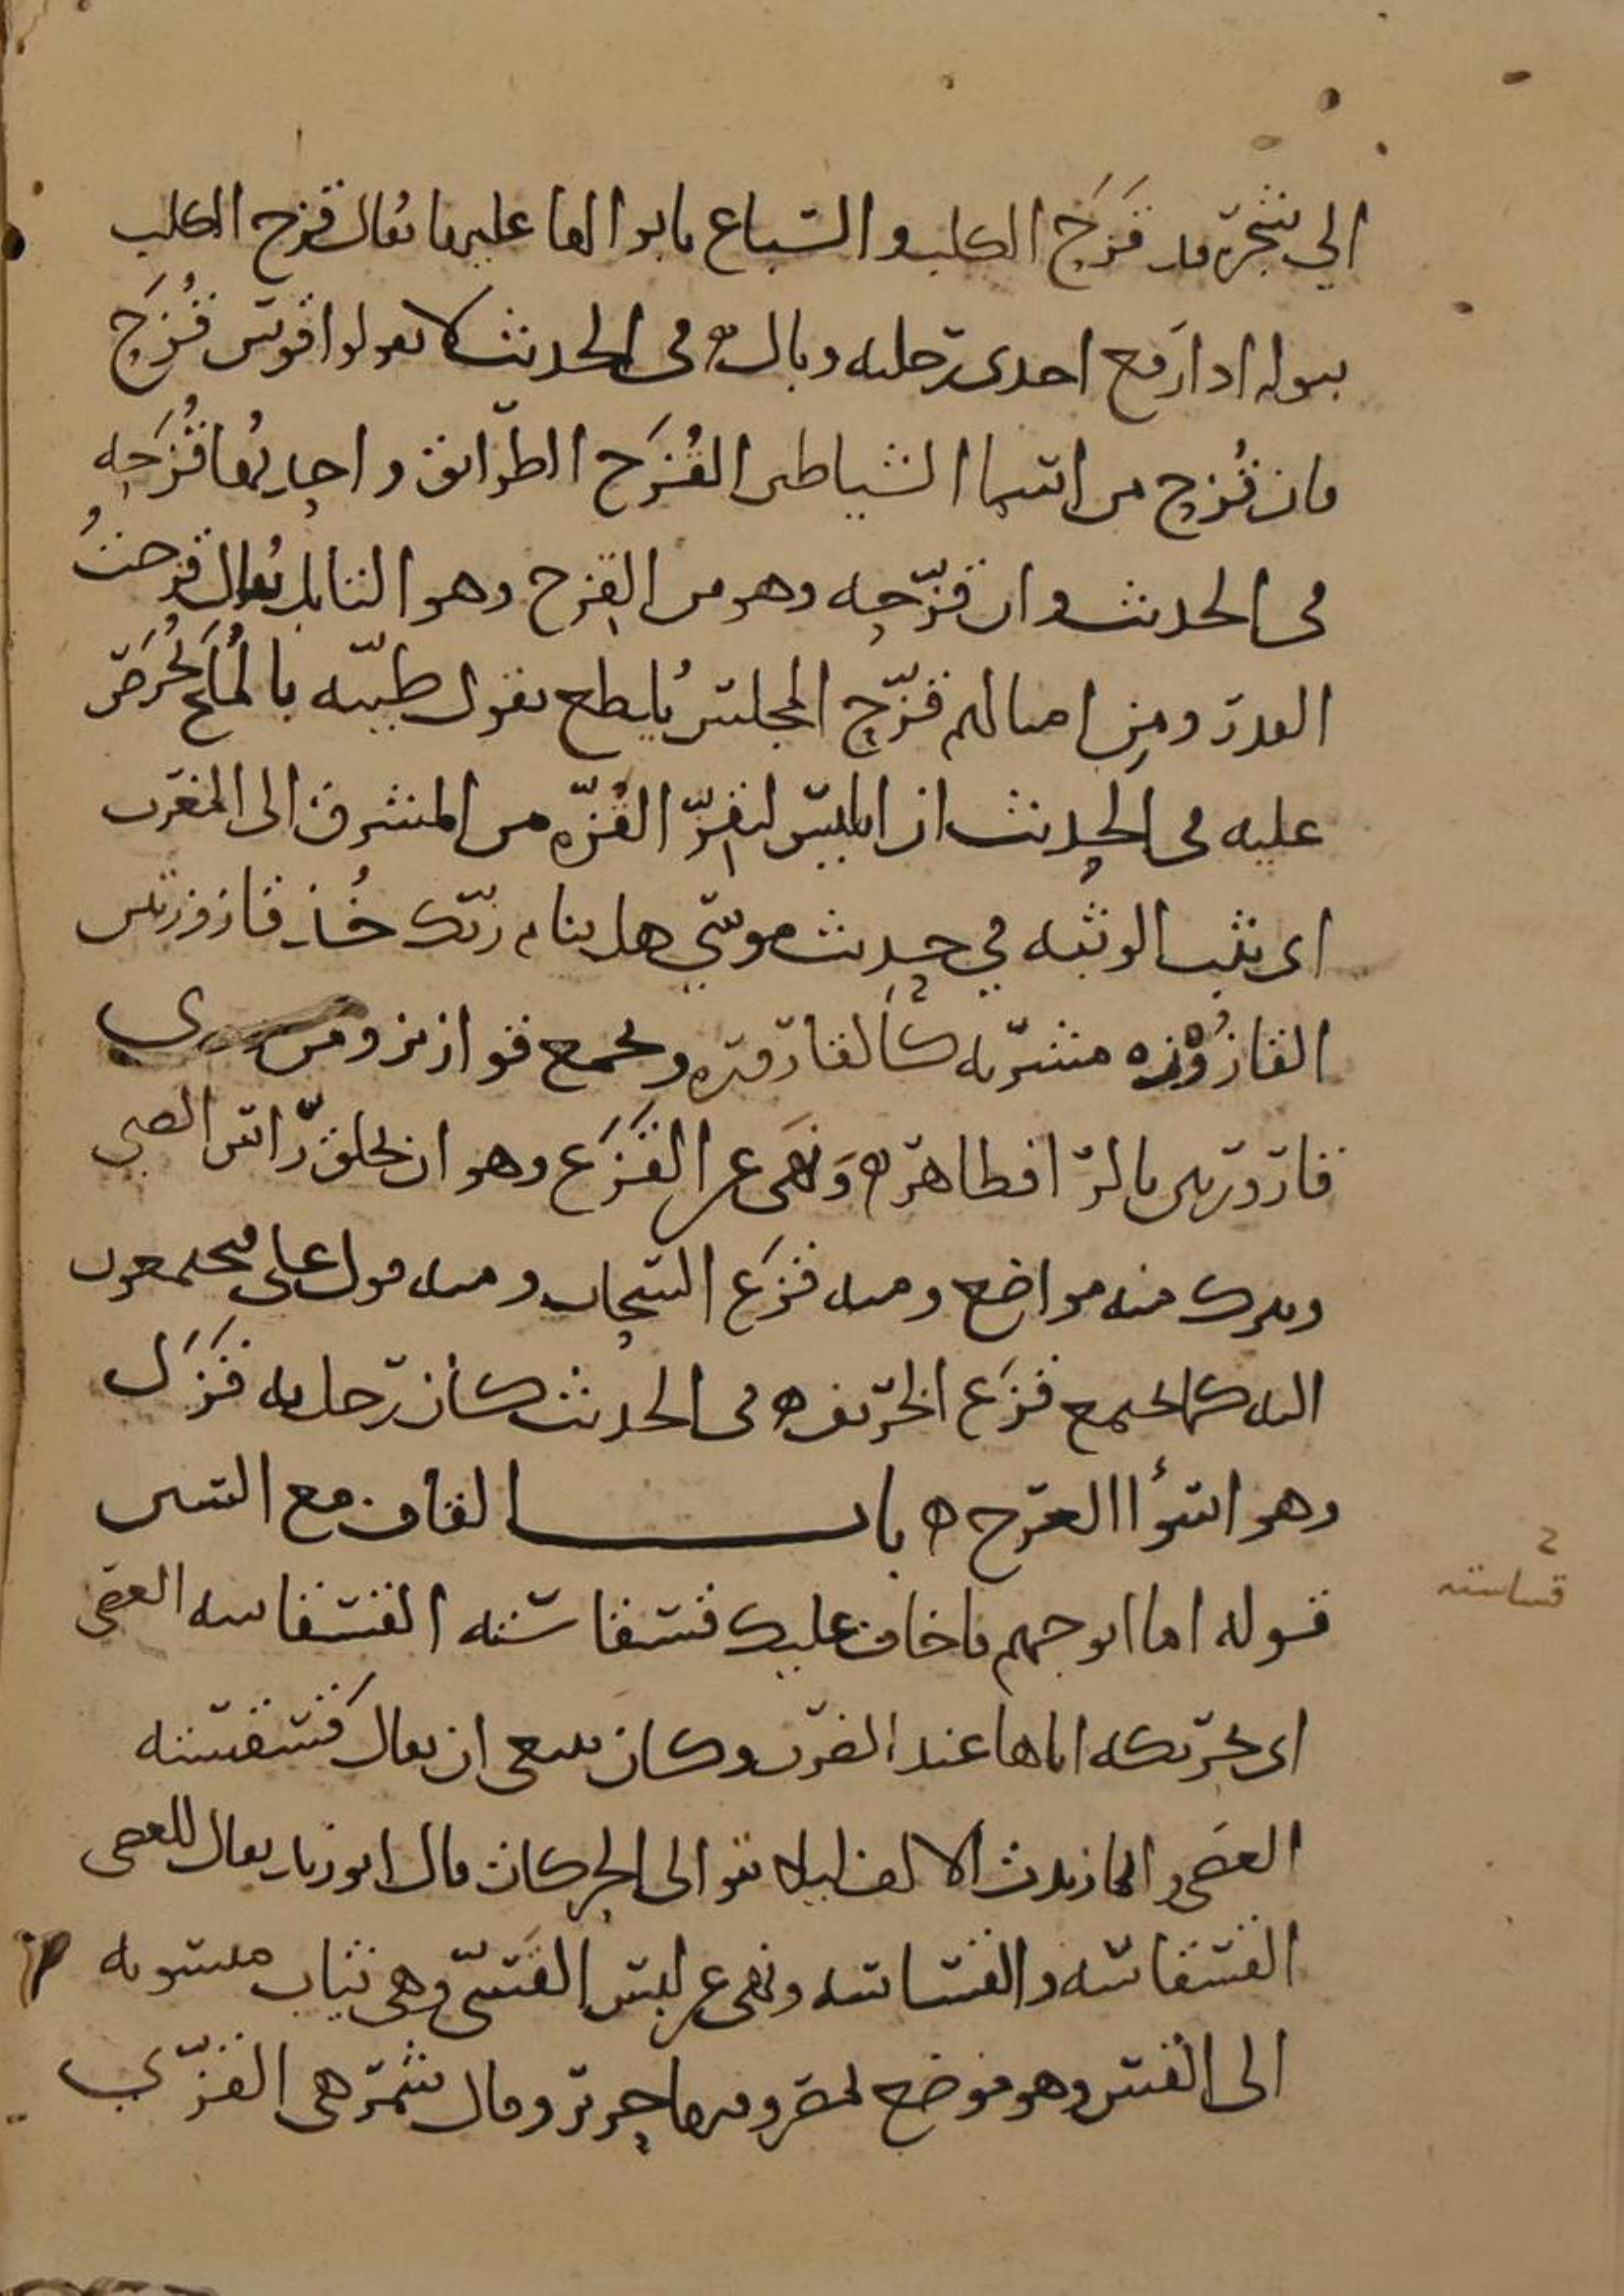 الي شجرة قد قزح الكلب والسباع بابوالها عليها يقال قزح الكلب
ببوله اذا رفع احدى رجليه وبال ه في الحديث لا تقولوا قوس قزح
فان قزح من اسما الشياطين القزح الطرائق واحدتها قزحه
في الحديث وان قزحه وهو من القزح وهو التابل يقال قزحت
القدر ومن امثالهم قزح المجلس يا يطح يقول طيبه بالملح يحرص
عليه في الحديث ان ابليس ليقز القزه من المشرق الى المغرب
اى يثب الوثبه في حديث موسي هل ينام ربك خذ قازوزتين
القازوزه مشربه كالقاروره وتجمع قوازيز ومن روى
قارورتين بالرا فظاهر ه ونهى عن القزع وهو ان يحلق راس الصبي
ويترك منه مواضع ومنه قزع السحاب ومنه قول على فيجتمعون
اليه كما يجتمع قزع الخريف ه في الحديث كان رجل به قزل
وهو اسوأ العرج ه باب القاف مع السين
قوله اما ابو جهم فاخاف عليك قسقاسته القسقاسه العصى
اى تحريكه اياها عند الضرب وكان ينبغى ان يقال قسقسته
العصى وانما زيدت الالف ليلا تتوالى الحركات قال ابو زيد يقال للعصى
القسقاسه والقساسه ونهى عن لبس القسي وهى ثياب منسوبه
الى القس وهو موضع لمصر وفيها حرير وقال شمر هى القزي
قساسته